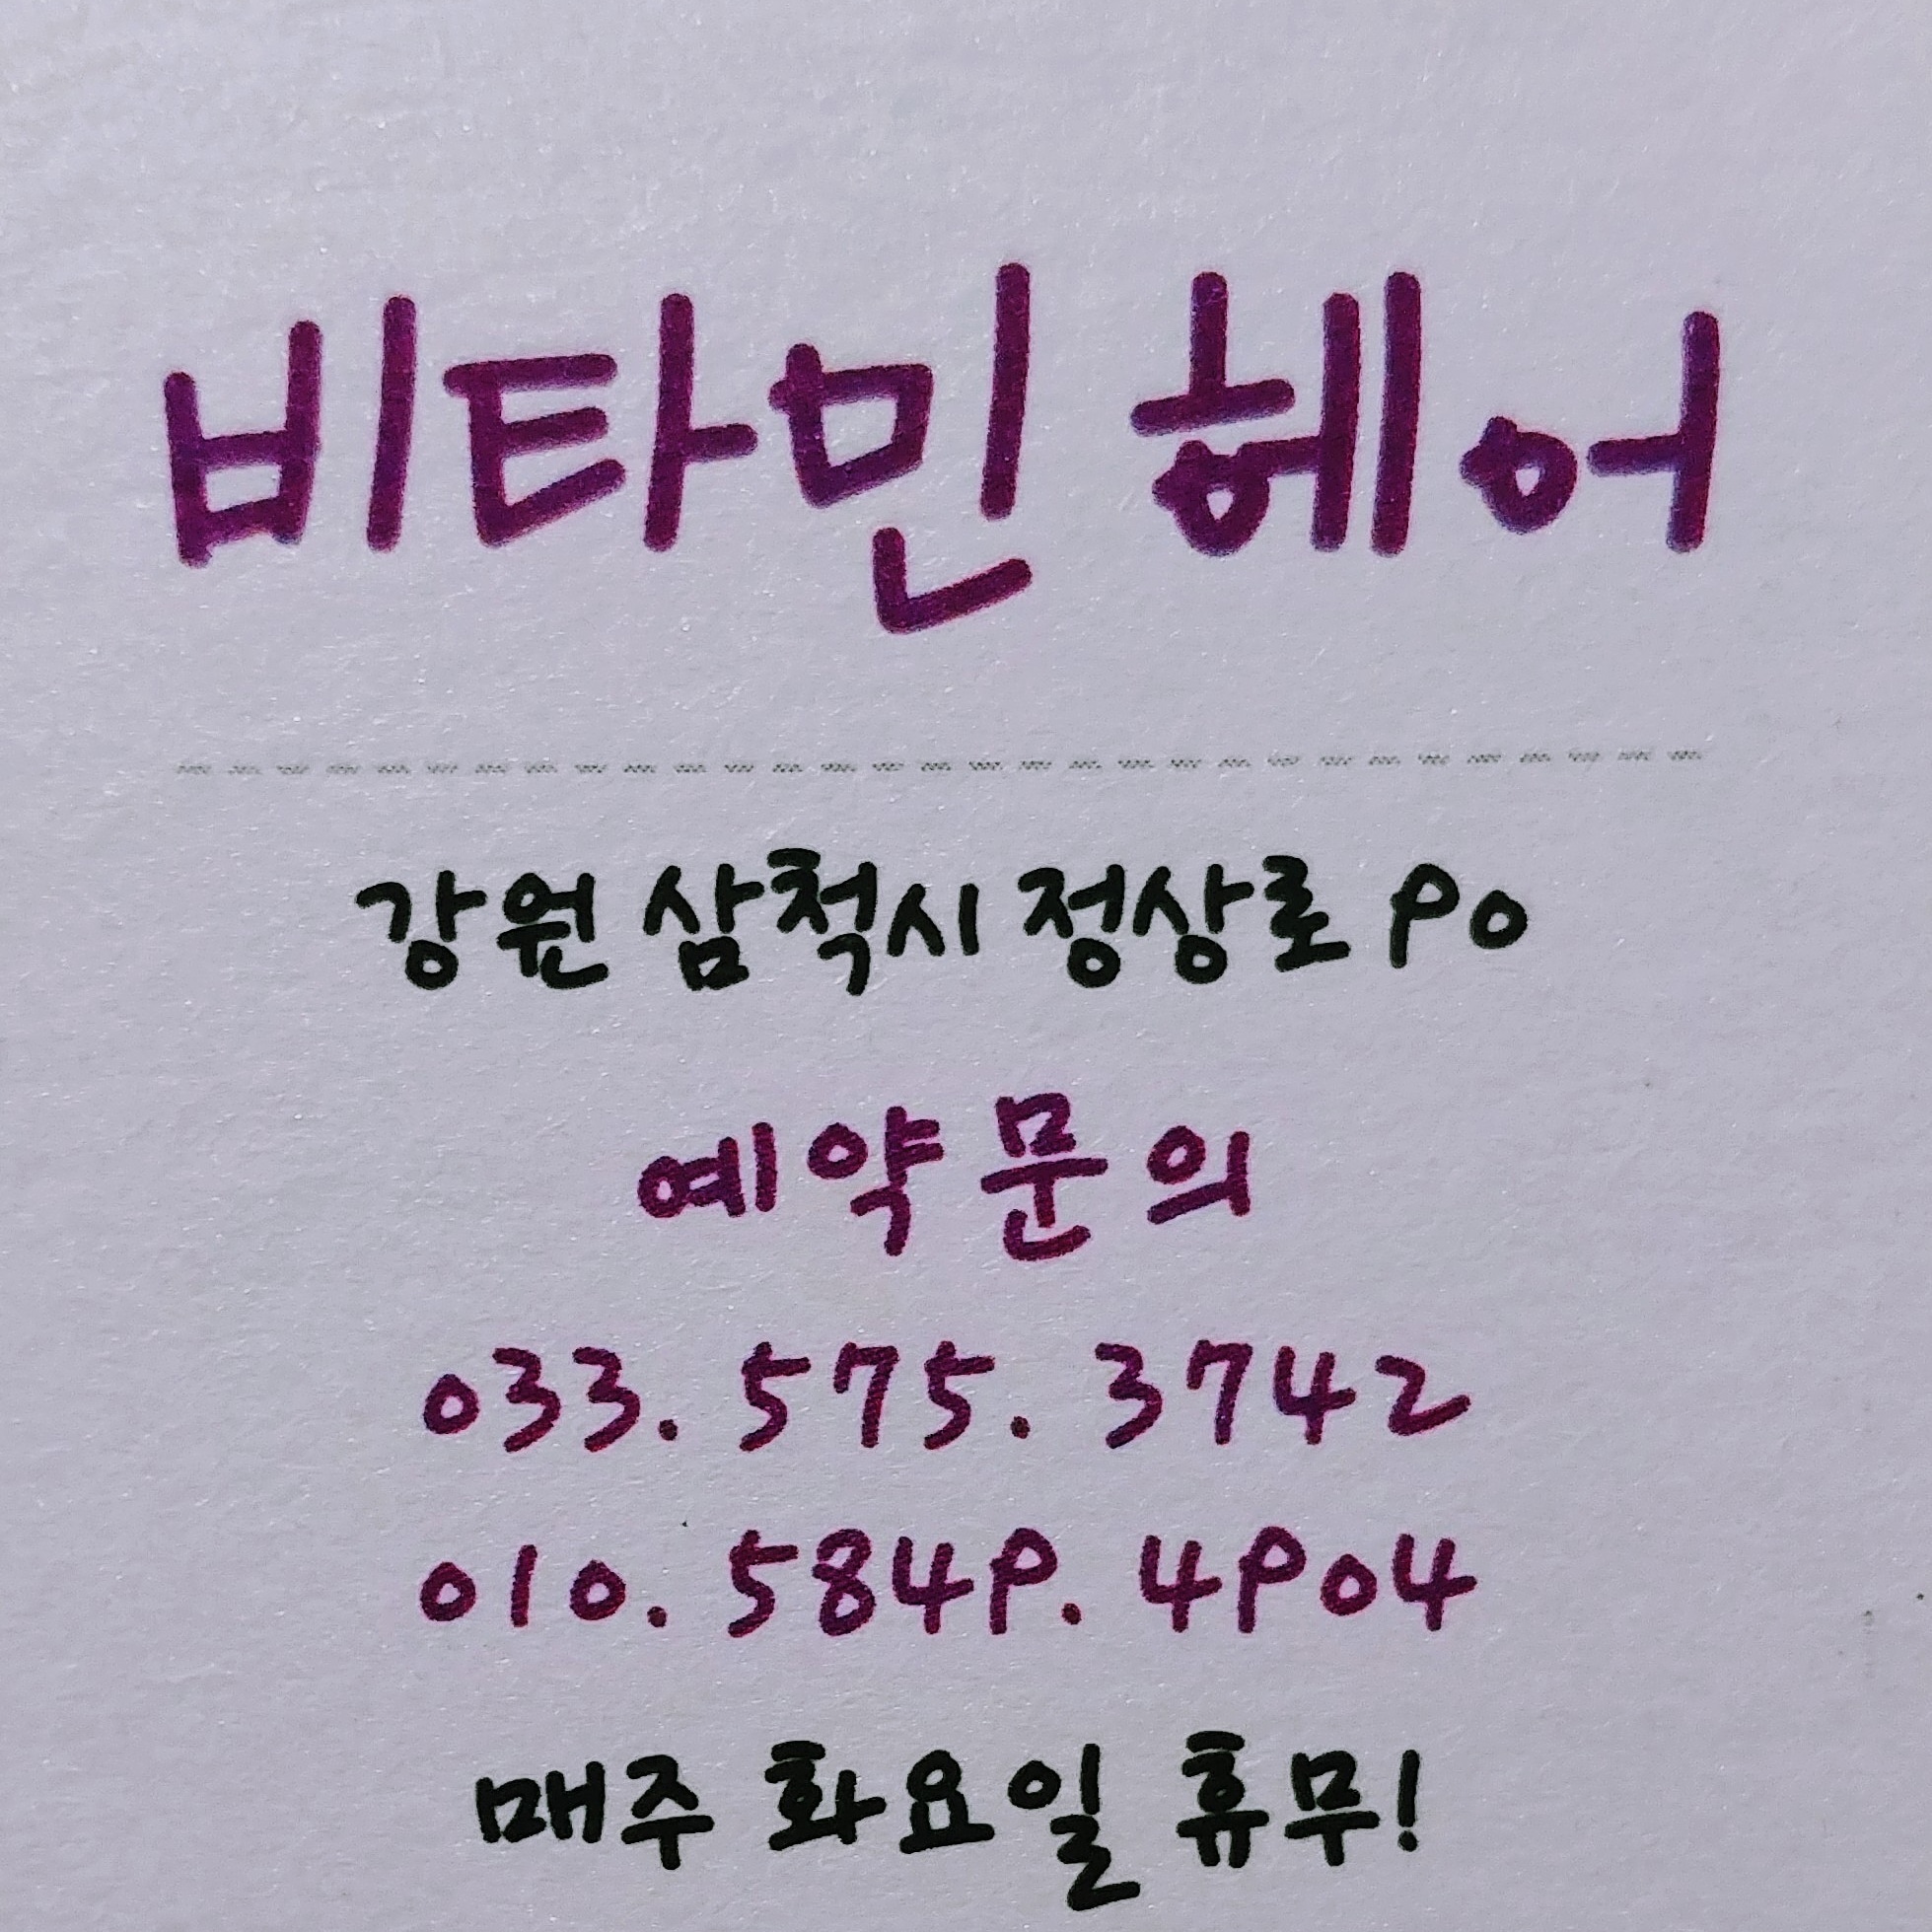 비타민 헤어
강원 삼척시 정상로 90
예약문의
033. 575. 3742
010. 5849. 4904
매주 화요일 휴무!